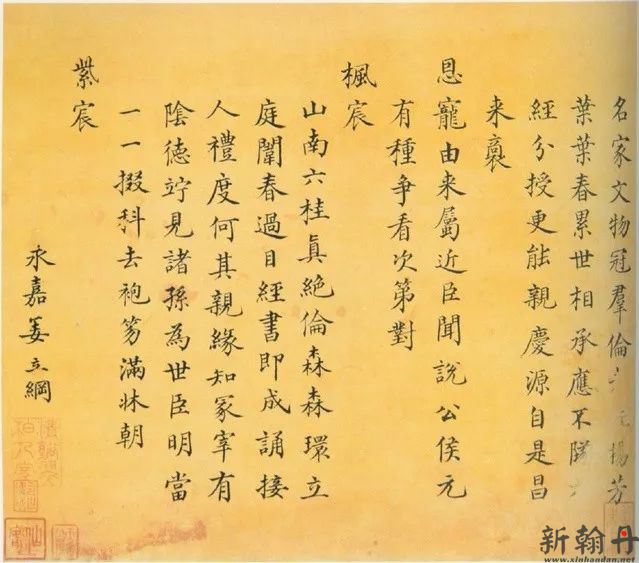 名家文物冠羣倫揚芳
葉葉春累世相承應不墜
經分授更能親慶源自是昌
来裔
恩寵由来屬近臣聞說公侯元
有種争看次第對
楓宸
山南六桂眞絶倫森森環立
庭闈春過目經書即成誦接
人禮度何其親緣知冢宰有
陰德竚見諸孫為世臣明當
一一掇科去袍笏滿牀朝
紫宸
永嘉姜立綱
新翰丹
www.xinhandan.net